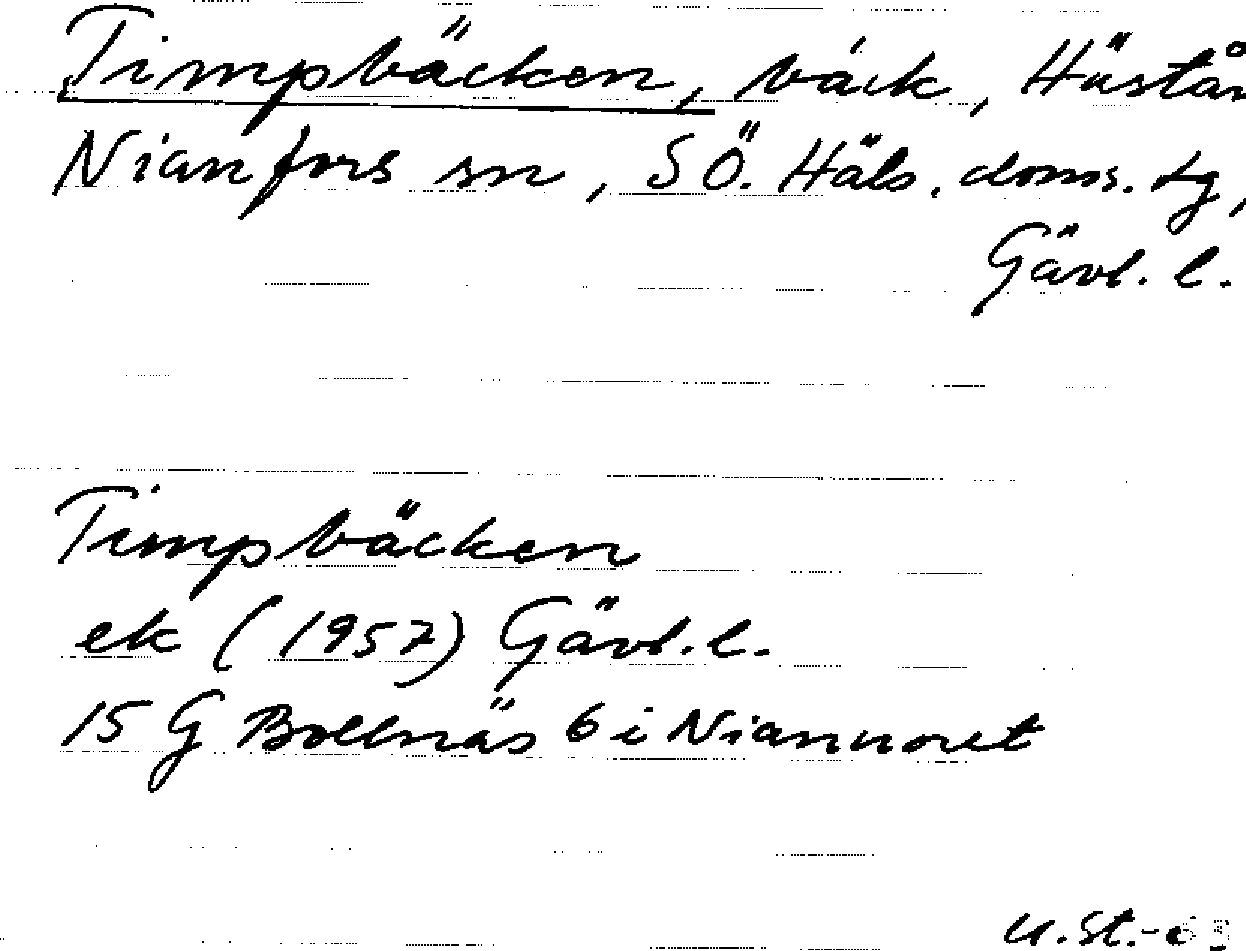 Timpbäcken, bäck, Hästån
Nianfors sn, SÖ. Häls. doms. tg,
Gävl. l.
Timpbäcken
ek (1957) Gävl. l.
15 G Bollnäs 6 i Niannoret
U.St.-63